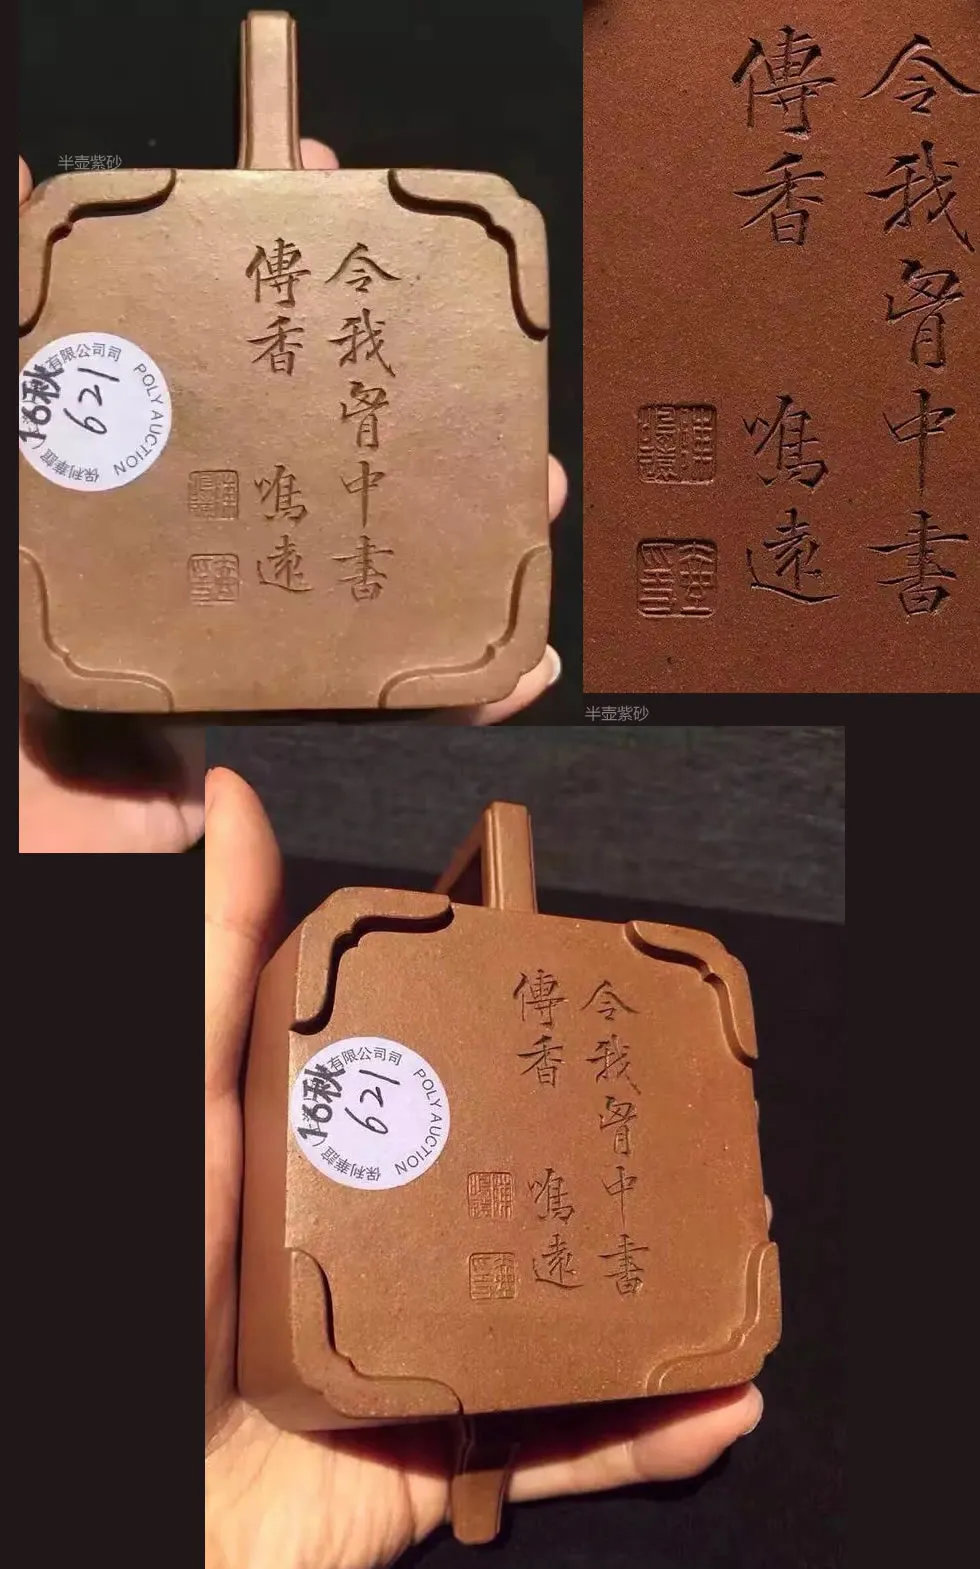 半壶紫砂
令我胷中書
傳香 鳴遠
保利華誼(
有限公司
POLY AUCTION
16秋
621
令我胷中書
傳香 鳴遠
半壶紫砂
令我胷中書
傳香 鳴遠
保利華誼(
有限公司
POLY AUCTION
16秋
621